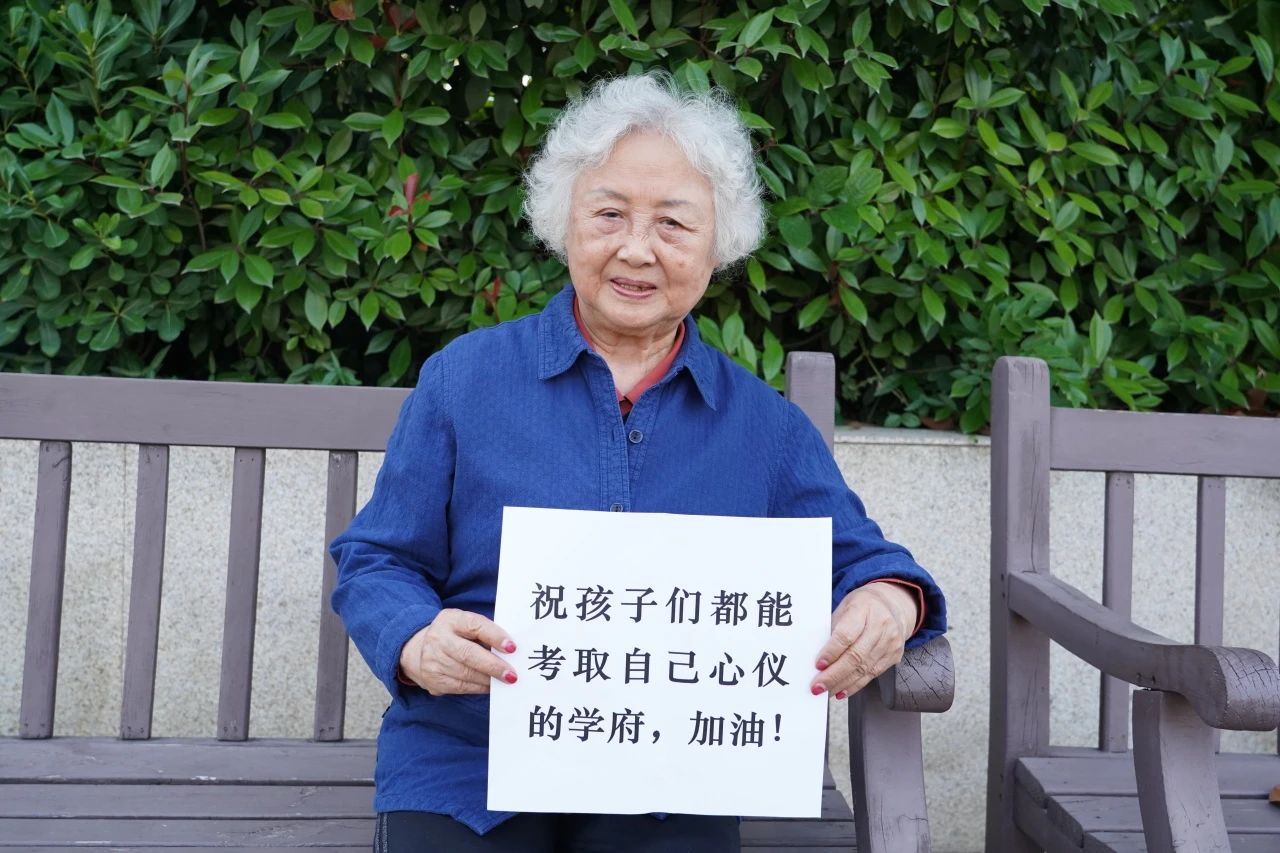 祝孩子们都能
考取自己心仪
的学府，加油！